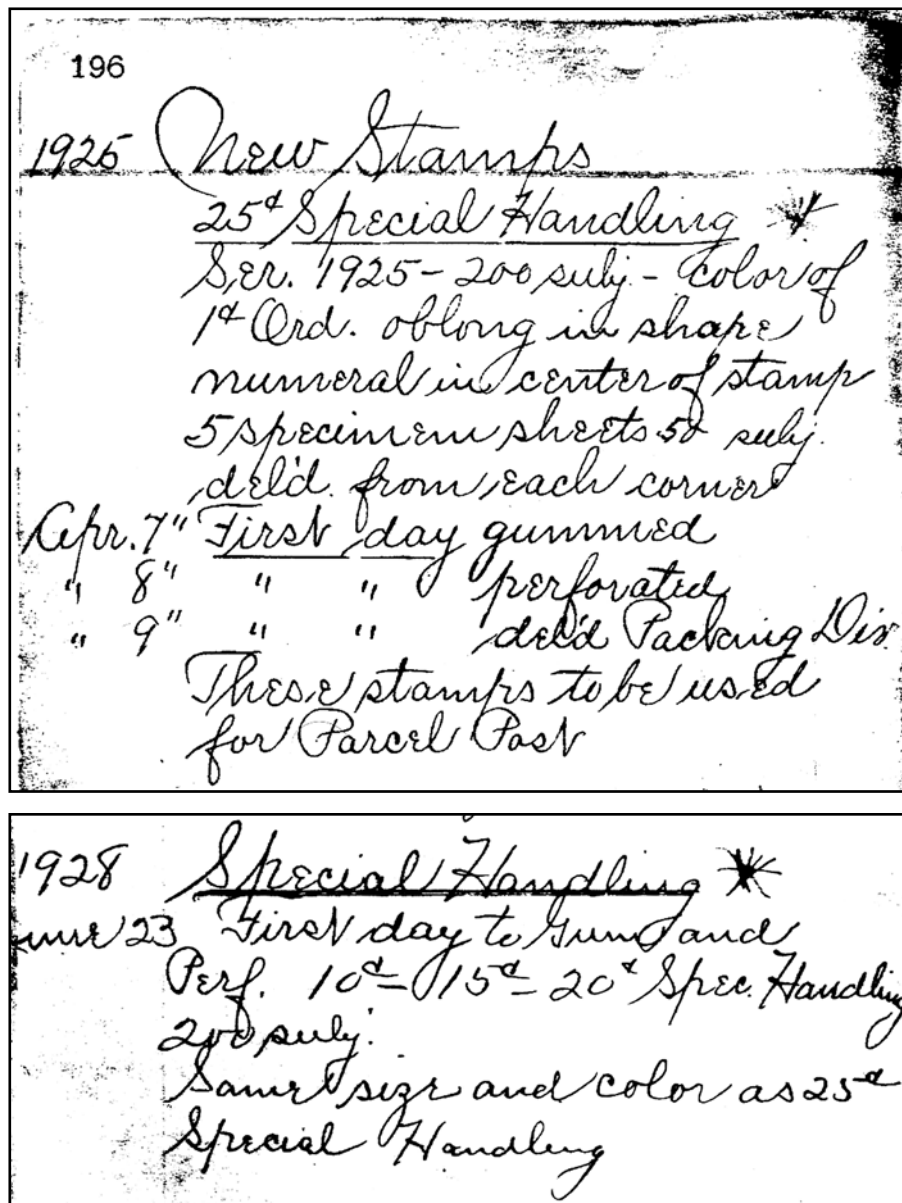 196
1925 New Stamps
25¢ Special Handling
Ser. 1925 - 200 subj - color of
1¢ Ord. oblong in shape
numeral in center of stamp
5 specimen sheets 50 subj.
del'd. from each corner
Apr. 7" First day gummed
" 8" " " perforated
" 9" " " del'd Packing Div.
These stamps to be used
for Parcel Post
1928 Special Handling
June 23 First day to Gum and
Perf. 10¢ - 15¢ - 20¢ Spec. Handling
200 subj.
Same size and color as 25¢
Special Handling